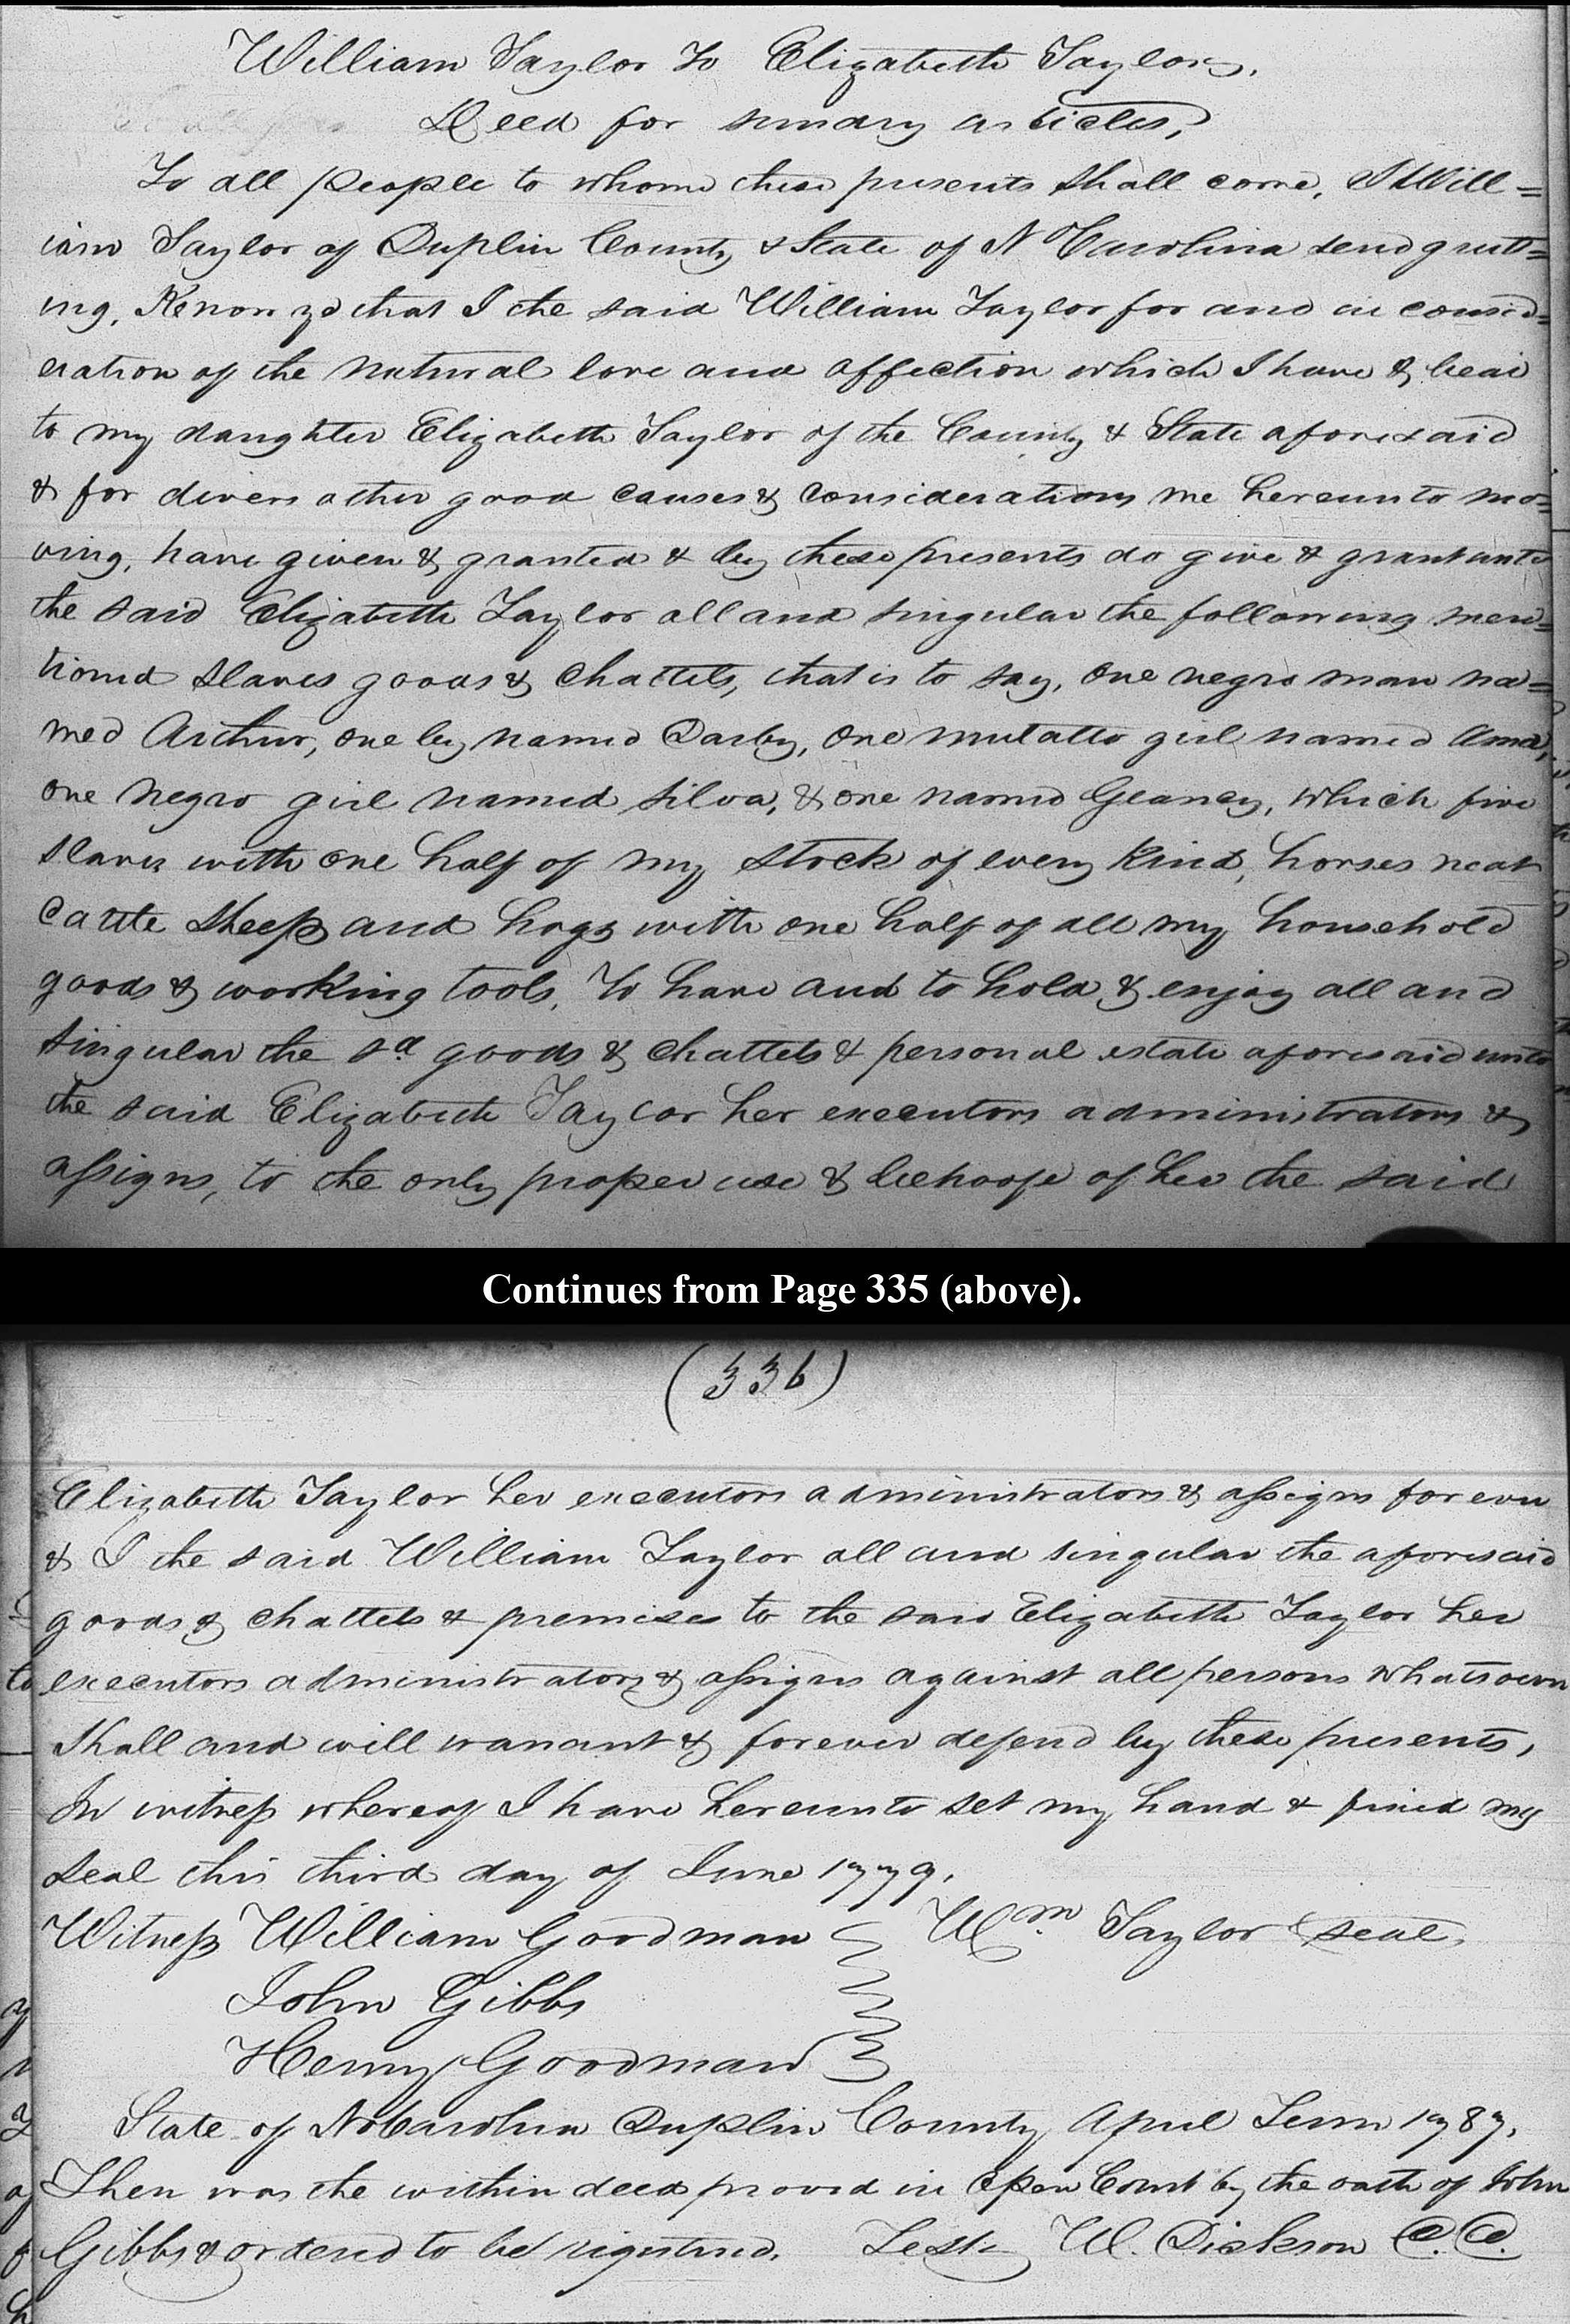 William Taylor To Elizabeth Taylor,
Deed for sundry articles,
To all people to whom these presents shall come, I Will=
iam Taylor of Duplin County & State of N Carolina send greet=
ing, Know ye that I the said William Taylor for and in consid=
eration of the natural love and affection which I have & bear
to my daughter Elizabeth Taylor of the County & State aforesaid
& for divers other good causes & considerations me hereunto mo=
ving, have given & granted & by these presents do give & grant unto
the said Elizabeth Taylor all and singular the following men=
tioned slaves goods & chattels, that is to say, one negro man na=
med Arthur, one boy named Darby, one mulatto girl named Ama,
one negro girl named Silva, & one named Geaney, which five
slaves with one half of my stock of every kind, horses neat
cattle sheep and hogs with one half of all my household
goods & working tools, To have and to hold & enjoy all and
singular the sd goods & chattels & personal estate aforesaid unto
the said Elizabeth Taylor her executors administrators &
assigns, to the only proper use & behoofe of her the said
Continues from Page 335 (above).
(336)
Elizabeth Taylor her executors administrators & assigns forever
& I the said William Taylor all and singular the aforesaid
goods & chattels & premises to the said Elizabeth Taylor her
executors administrators & assigns against all persons whatsoever
shall and will warrant & forever defend by these presents,
In witness whereof I have hereunto set my hand & fixed my
seal this third day of June 1779.
Witness William Goodman Wm. Taylor seal,
John Gibbs
Henry Goodman
State of No Carolina Duplin County April Term 1787,
Then was the within deed proved in open Court by the oath of John
Gibbs & ordered to be registered. Test W. Dickson C.C.